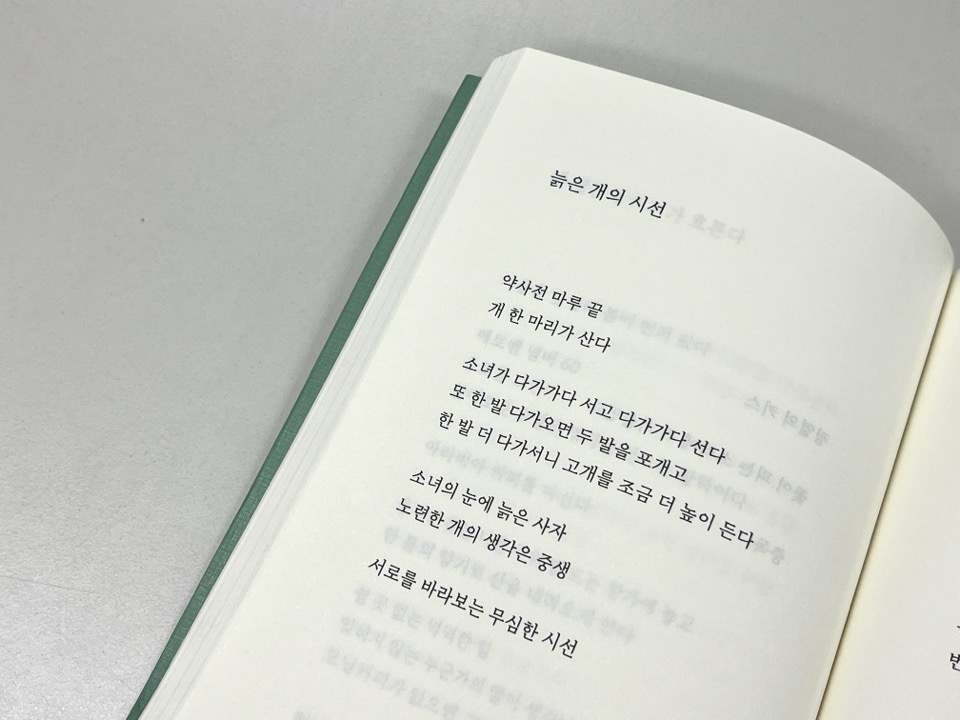 늙은 개의 시선
약사전 마루 끝
개 한 마리가 산다
소녀가 다가가다 서고 다가가다 선다
또 한 발 다가오면 두 발을 포개고
한 발 더 다가서니 고개를 조금 더 높이 든다
소녀의 눈에 늙은 사자
노련한 개의 생각은 중생
서로를 바라보는 무심한 시선